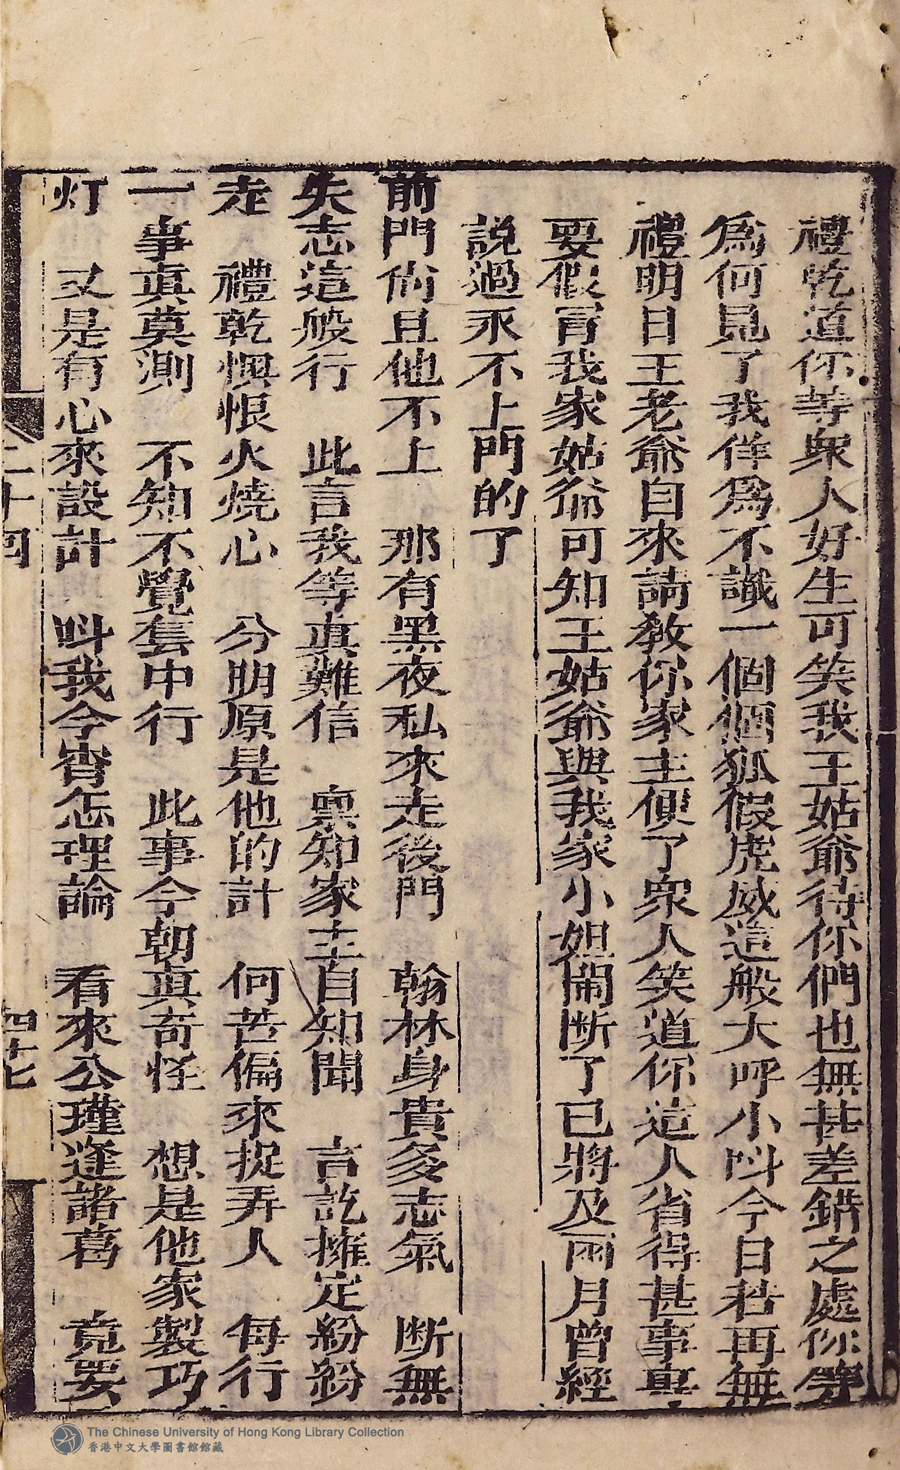 禮乾道你等衆人好生可笑我王姑爺待你們也無甚差錯之處你等
爲何見了我佯爲不識一個個狐假虎威這般大呼小呌今日若再無
禮明日王老爺自來請教你家主便了衆人笑道你這人省得甚事莫
要假冒我家姑爺可知王姑爺與我家小姐鬧断了已將及兩月曾經
説過永不上門的了
前門尙且他不上　那有黑夜私來走後門　翰林身貴多志氣　断無
失志這般行　此言我等真難信　禀知家主自知聞　言訖擁定紛紛
走　禮乾惧恨火燒心　分明原是他的計　何苦偏來捉弄人　每行
一事真莫測　不知不覺套中行　此事今朝真奇怪　想是他家製巧
灯　又是有心來設計　呌我今宵怎理論　看來公瑾逢諸葛　竟要
二十四
四十七
The Chinese University of Hong Kong Library Collection
香港中文大學圖書館館藏